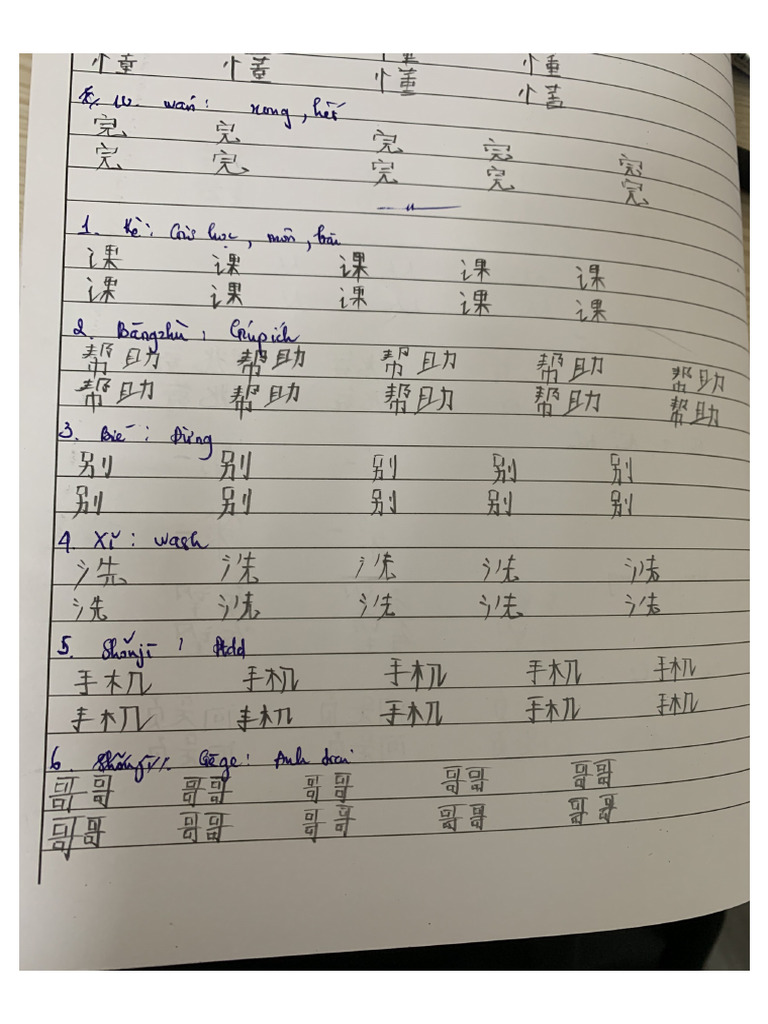 懂 懂 懂 懂
懂 懂 懂 懂
10. wán: xong, hết
完 完 完 完 完
完 完 完 完 完
1. Kè: Giờ học, môn, bài
课 课 课 课 课
课 课 课 课 课
2. Bāngzhù: Giúp ích
帮助 帮助 帮助 帮助 帮助
帮助 帮助 帮助 帮助 帮助
3. Bié: Đừng
别 别 别 别 别
别 别 别 别 别
4. Xǐ: wash
洗 洗 洗 洗 洗
洗 洗 洗 洗 洗
5. Shǒujī: Add
手机 手机 手机 手机 手机
手机 手机 手机 手机 手机
6. Gēge: Anh trai
哥哥 哥哥 哥哥 哥哥 哥哥
哥哥 哥哥 哥哥 哥哥 哥哥